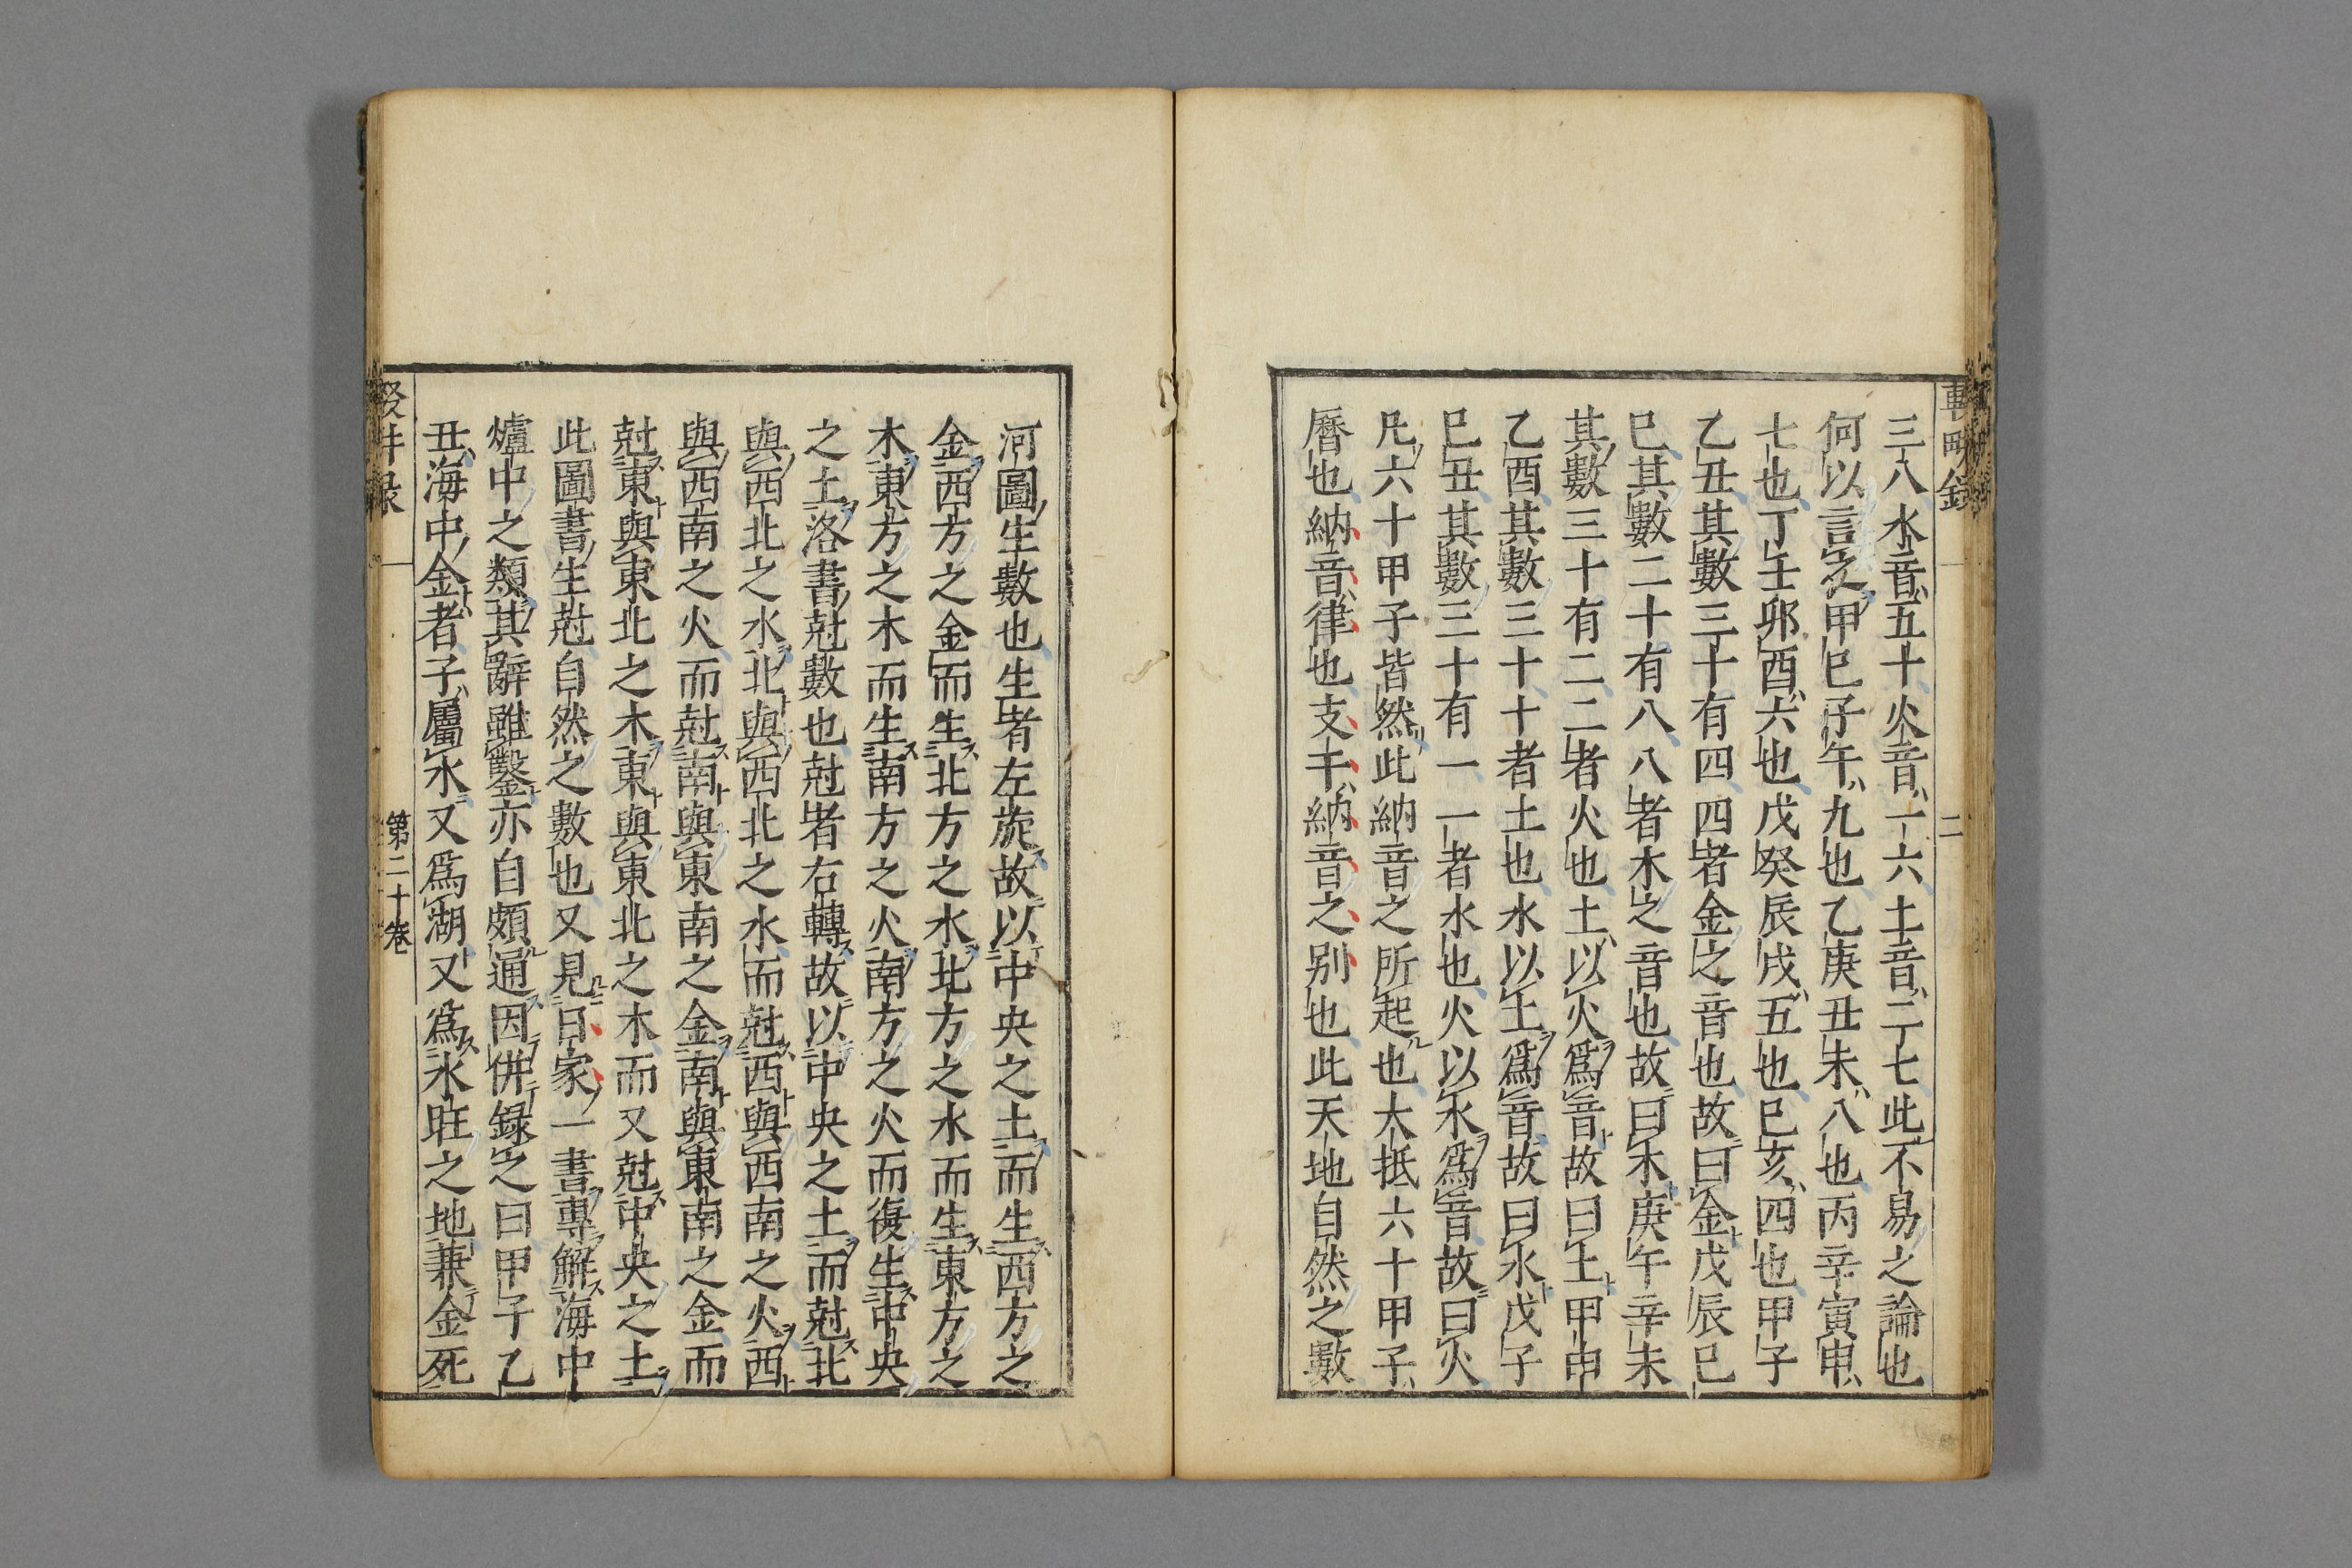 三八水音五十火音一六土音二七此不易之論也
何以言之甲己子午九也乙庚丑未八也丙辛寅申
七也丁壬卯酉六也戊癸辰戌五也巳亥四也甲子
乙丑其數三十有四四者金之音也故曰金戊辰己
巳其數二十有八八者木之音也故曰木庚午辛未
其數三十有二二者火也土以火爲音故曰土甲申
乙酉其數三十十者土也水以土爲音故曰水戊子
己丑其數三十有一一者水也火以水爲音故曰火
凡六十甲子皆然此納音之所起也大抵六十甲子
曆也納音律也支干納音之别也此天地自然之數
河圖生數也生者左旋故以中央之土而生西方之
金西方之金而生北方之水北方之水而生東方之
木東方之木而生南方之火南方之火而復生中央
之土洛書尅數也尅者右轉故以中央之土而尅北
與西北之水北與西北之水而尅西與西南之火西
與西南之火而尅南與東南之金南與東南之金而
尅東與東北之木東與東北之木而又尅中央之土
此圖書生尅自然之數也又見日家一書專解海中
爐中之類其辭雖鑿亦自頗通因併録之曰甲子乙
丑海中金者子屬水又爲湖又爲水旺之地兼金死
第二十卷
二